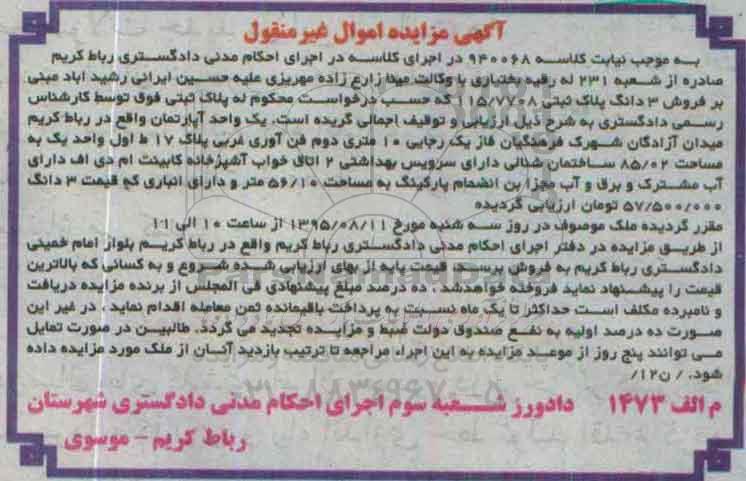 آگهی مزایده اموال غیر منقول
به موجب نیابت کلاسه ۹۴۰۰۶۸ در اجرای کلاسه در اجرای احکام مدنی دادگستری رباط کریم
صادره از شعبه ۲۳۱ له رقیه بختیاری با وکالت مینا زارع زاده مهریزی علیه حسین ایرانی رشید اباد مبنی
بر فروش ۳ دانگ پلاک ثبتی ۱۱۵/۷۷۰۸ که حسب درخواست محکوم له پلاک ثبتی فوق توسط کارشناس
رسمی دادگستری به شرح ذیل ارزیابی و توقیف اجمالی گردیده است. یک واحد آپارتمان واقع در رباط کریم
میدان آزادگان شهرک فرهنگیان فاز یک رجایی ۱۰ متری دوم فن آوری غربی پلاک ۱۷ ط اول واحد یک به
مساحت ۸۵/۰۲ ساختمان شمالی دارای سرویس بهداشتی ۲ اتاق خواب آشپزخانه کابینت ام دی اف دارای
آب مشترک و برق و آب مجزا بن انضمام پارکینگ به مساحت ۵۶/۱۰ متر و دارای انباری که قیمت ۳ دانگ
۵۷/۵۰۰/۰۰۰ تومان ارزیابی گردیده
مقرر گردیده ملک موصوف در روز سه شنبه مورخ ۱۳۹۵/۰۸/۱۱ از ساعت ۱۰ الی ۱۱
از طریق مزایده در دفتر اجرای احکام مدنی دادگستری رباط کریم واقع در رباط کریم بلوار امام خمینی
دادگستری رباط کریم به فروش برسد . قیمت پایه از بهای ارزیابی شده شروع و به کسانی که بالاترین
قیمت را پیشنهاد نماید فروخته خواهدشد . ده درصد مبلغ پیشنهادی فی المجلس از برنده مزایده دریافت
و نامبرده مکلف است حداکثر تا یک ماه نسبت به پرداخت باقیمانده ثمن معامله اقدام نماید، در غیر این
صورت ده درصد اولیه به نفع صندوق دولت ضبط و مزایده تجدید می گردد. طالبین در صورت تمایل
می توانند پنج روز از موعد مزایده به این اجراء مراجعه تا ترتیب بازدید آنان از ملک مورد مزایده داده
شود. / ن۱۲/
۰۲۱-۸۸۳۴۹۶۷۰-۵
م الف ۱۴۷۳ دادورز شعبه سوم اجرای احکام مدنی دادگستری شهرستان
رباط کریم – موسوی